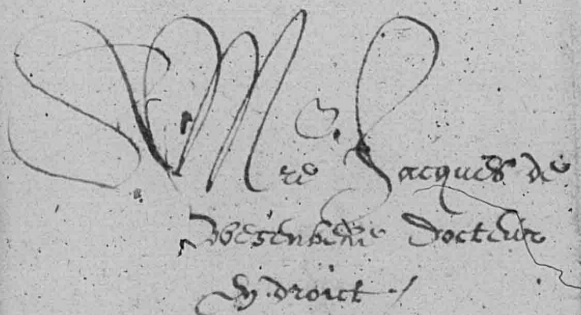 Mre Jacques de
Wesenbeke docteur
en droict